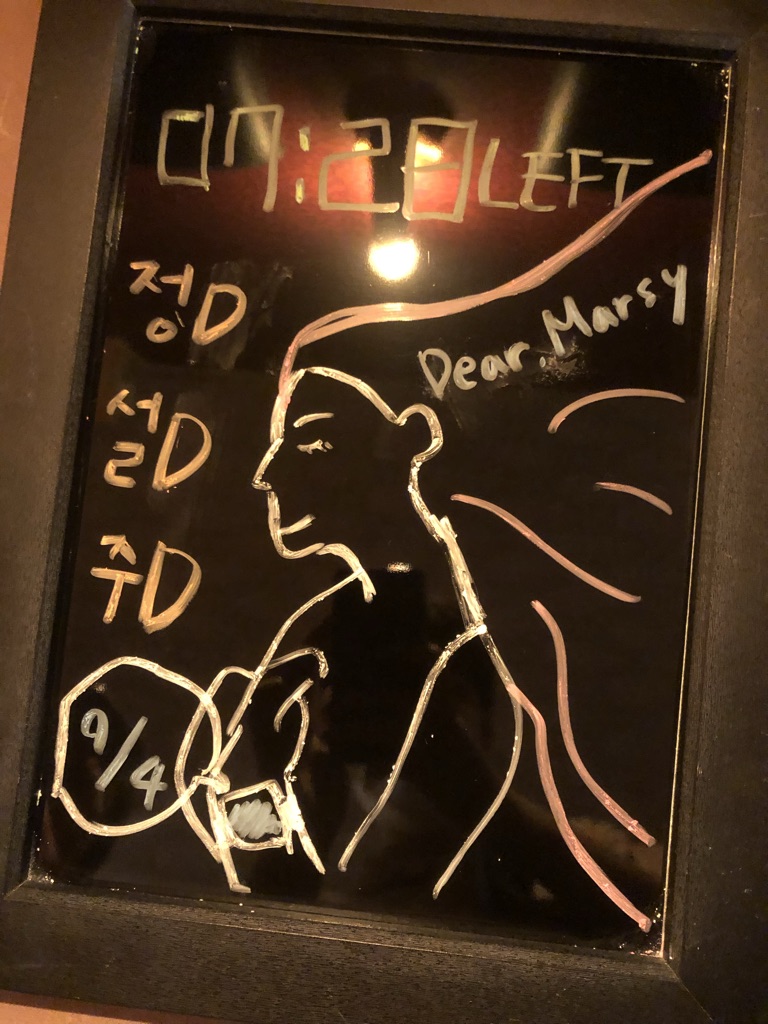 07:28 LEFT
Dear. Marsy
정D
설D
주D
9/4